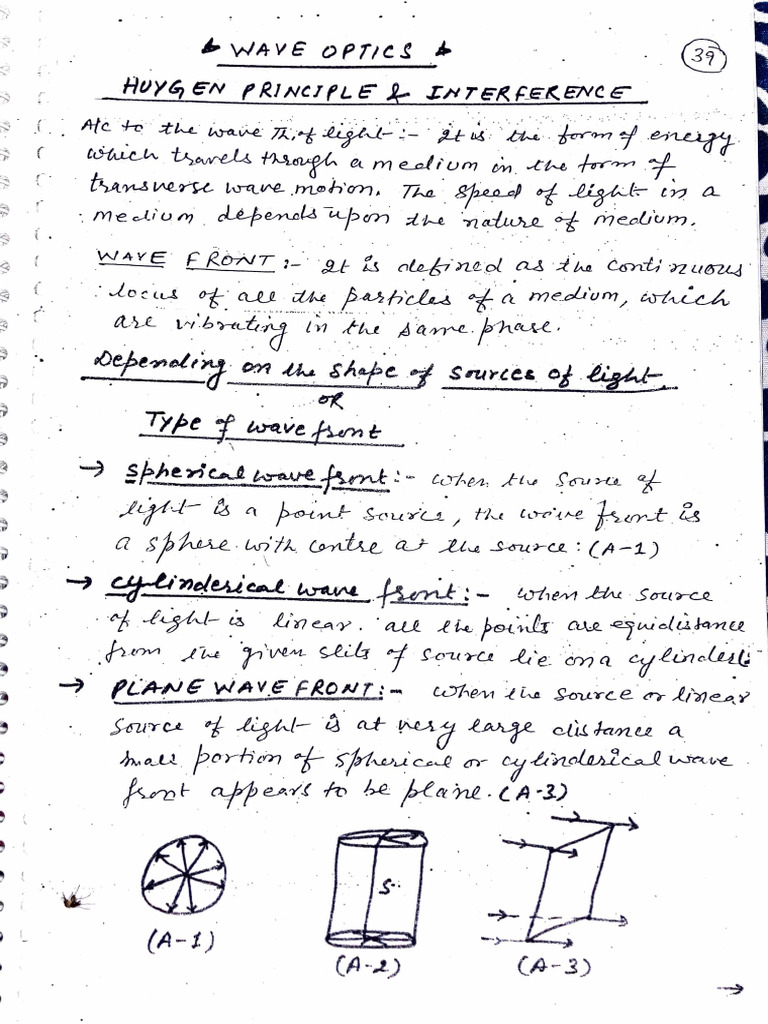 WAVE OPTICS
39
HUYGEN PRINCIPLE & INTERFERENCE
A/c to the wave Th. of light :- It is the form of energy
which travels through a medium in the form of
transverse wave motion. The speed of light in a
medium depends upon the nature of medium.
WAVE FRONT :- It is defined as the continuous
locus of all the particles of a medium, which
are vibrating in the same phase.
Depending on the shape of sources of light
OR
Type of wave front
→ Spherical wave front :- when the source of
light is a point source, the wave front is
a sphere with centre at the source : (A-1)
→ Cylinderical wave front :- when the source
of light is linear. all the points are equidistance
from the given slits of source lie on a cylinder
→ PLANE WAVE FRONT :- when the source or linear
source of light is at very large distance a
small portion of spherical or cylinderical wave
front appears to be plane. (A-3)
S
(A-1)
(A-2)
(A-3)
→